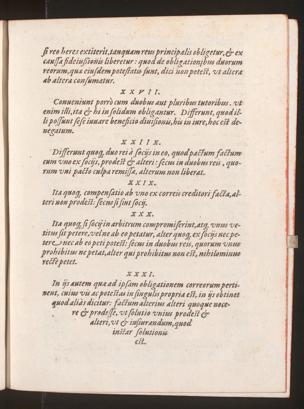 si reo heres extiterit, tanquam reus principalis obligetur, & ex
caussa fideiussionis liberetur: quod de obligationibus duorum
reorum, quæ eiusdem potestatis sunt, dici non potest, vt altera
ab altera consumatur.
XXVII.
Conueniunt porrò cum duobus aut pluribus tutoribus. vt
enim illi, ita & hi in solidum obligantur. Differunt, quod il-
li possunt sese iuuare beneficio diuisionis, his in iure, hoc est de-
negatum.
XXIIX.
Differunt quoq, duo rei à socijs in eo, quod pactum factum
cum vno ex socijs, prodest & alteri: secus in duobus reis, quo-
rum vni pacto culpa remissa, alterum non liberat.
XXIX.
Ita quoq, compensatio ab vno ex correis creditori facta, al-
teri non prodest: secus si sint socij.
XXX.
Ita quoq, si socij in arbitrum compromiserint, atq, vnus ve-
titus sit petere, vel ne ab eo petatur, alter quoq, ex socijs nec pe-
tere, nec ab eo peti potest: secus in duobus reis, quorum vnus
prohibitus ne petat, alter qui prohibitus non est, nihilominus
rectè petet.
XXXI.
In ijs autem quæ ad ipsam obligationem correorum perti-
nent, cuius vis ac potestas in singulis propria est, in ijs obtinet
quod aliàs dicitur: factum alterius alteri quoque noce-
re & prodesse, vt solutio vnius prodest &
alteri, vt & iusiurandum, quod
instar solutionis
est.